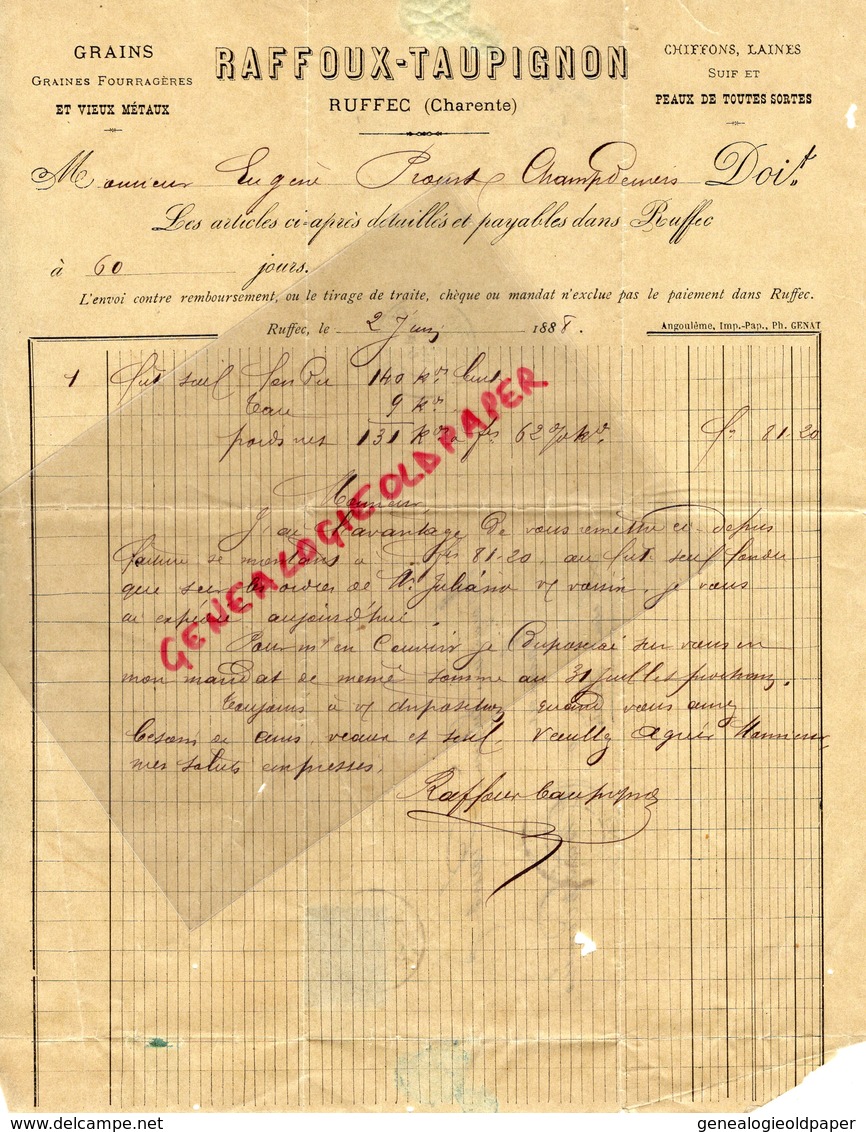 GRAINS
GRAINES FOURRAGÈRES
ET VIEUX MÉTAUX
RAFFOUX-TAUPIGNON
RUFFEC (Charente)
CHIFFONS, LAINES
SUIF ET
PEAUX DE TOUTES SORTES
Monsieur Eugène Champdeniers Doit
Les articles ci-après détaillés et payables dans Ruffec
à 60 jours.
L'envoi contre remboursement, ou le tirage de traite, chèque ou mandat n'exclue pas le paiement dans Ruffec.
Ruffec, le 2 Juin 1888.
Angoulême, Imp.-Pap., Ph. GENAT
1 fût suif fondu 140 ks brut
Tare 9 ks
poids net 131 ks à fs 62 % ks fs 81-20
Monsieur,
J'ai l'avantage de vous remettre ci-dessus
facture se montant à fs 81-20 au fût suif fondu
que sur les ordres de Mr voisin, je vous
ai expédié aujourd'hui.
Pour m'en couvrir je disposerai sur vous en
mon mandat de même somme au 31 juillet prochain.
Toujours à vs disposition quand vous aurez
besoin de cuirs, veaux et suif. Veuillez agréer Monsieur,
mes saluts empressés.
Raffoux Taupignon
GENEALOGIEOLDPAPER
www.delcampe.net
genealogieoldpaper